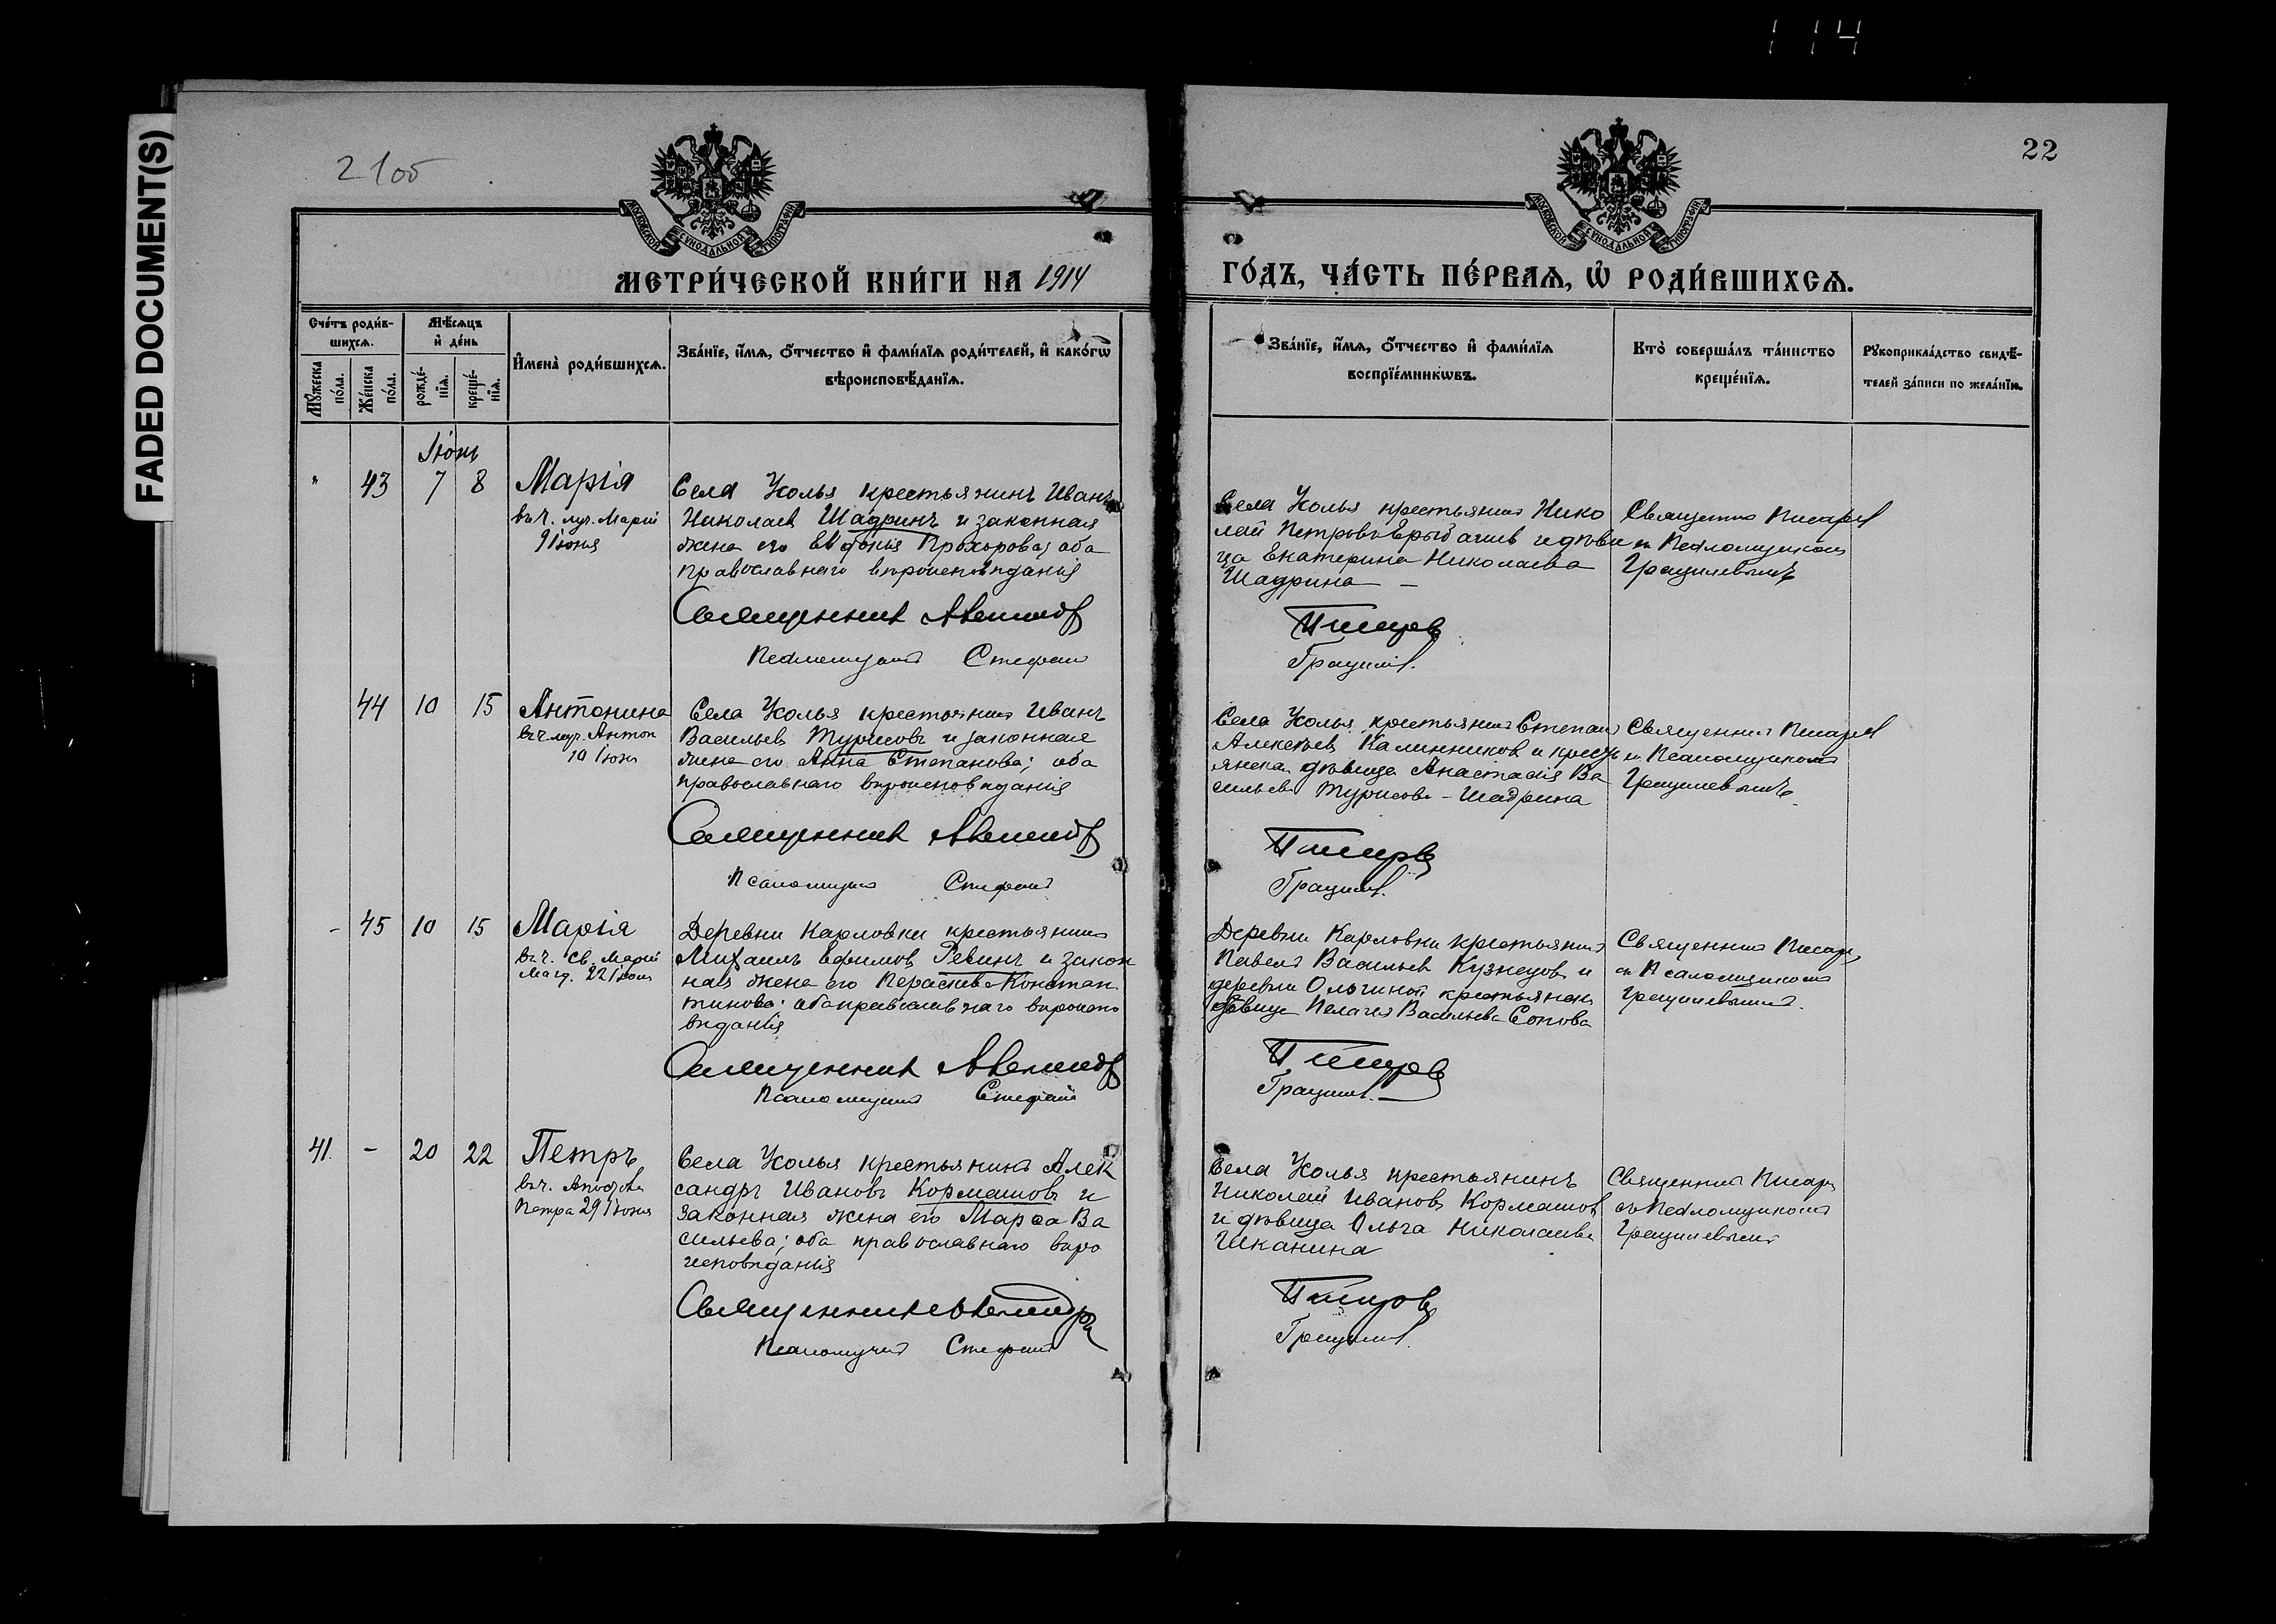 114
FADED DOCUMENT(S)
21об
22
МОСКОВСКОЙ СѴНОДАЛЬНОЙ ТИПОГРАФІИ
МОСКОВСКОЙ СѴНОДАЛЬНОЙ ТИПОГРАФІИ
МЕТРИ́ЧЕСКОЙ КНИ́ГИ НА 1914
ГО́ДЪ, ЧА́СТЬ ПЕ́РВАѦ, Ѡ҆ РОДИ́ВШИХСѦ.
Сче́тъ роди́в-
шихсѧ.
Мꙋ́жеска по́ла.
Же́нска по́ла.
Мѣ́сѧцъ
и҆ де́нь
рожде́-нїѧ.
креще́-нїѧ.
И҆мена̀ роди́вшихсѧ.
Зва́нїе, и҆́мѧ, ѻ҆́тчество и҆ фами́лїѧ роди́телей, и҆ како́гѡ
вѣроисповѣ́данїѧ.
Зва́нїе, и҆́мѧ, ѻ҆́тчество и҆ фами́лїѧ
воспрїе́мникѡвъ.
Кто̀ соверша́лъ та́инство
креще́нїѧ.
Рꙋкоприкла́дство свидѣ́-
телей за́писи по жела́нїю.
Іюнь
" 43 7 8 Марія
въ ч. муч. Маріи
9 Іюня
Села Усолья крестьянинъ Иванъ
Николаев Шадринъ и законная
жена его Прохорова; оба
православнаго вѣроисповѣданія
Священник Александр
Псаломщикъ Стефан
Села Усолья крестьянинъ Нико
лай Петровъ и дѣви
ца Екатерина Николаева
Шадрина —
Писарев
Грацилев.
Священникъ Писарев
съ Псаломщикомъ
Грацилевымъ
44 10 15 Антонина
въ ч. муч. Антон
10 Іюня
Села Усолья крестьянинъ Иванъ
Васильевъ Турисовъ и законная
жена его Анна Степанова; оба
православнаго вѣроисповѣданія
Священник Александр
Псаломщикъ Стефанъ
Села Усолья крестьянинъ Степанъ
Алексѣевъ Калинников и кресть
янская дѣвица Анастасія Ва
сильева Турисова - Шадрина
Писарев
Грацилев.
Священникъ Писарев
съ Псаломщикомъ
Грацилевымъ
- 45 10 15 Марія
въ ч. Св. Маріи
Магд. 22 Іюля
Деревни Карловки крестьянинъ
Михаилъ Ефимовъ Ревинъ и закон
ная жена его Параскева Констан
тинова; оба православнаго вѣроиспо
вѣданія
Священник Александр
Псаломщикъ Стефанъ
Деревни Карловки крестьянинъ
Павелъ Васильев Кузнецовъ и
деревни Ольгиной крестьянск
дѣвица Пелагея Васильева Сопова
Писарев
Грацилев.
Священникъ Писарев
съ Псаломщикомъ
Грацилевымъ.
41. - 20 22 Петръ
въ ч. Апостола
Петра 29 Іюня
Села Усолья крестьянинъ Алек
сандръ Ивановъ Кормашовъ и
законная жена его Марѳа Ва
сильева; оба православнаго вѣро
исповѣданія
Священник Александръ
Псаломщикъ Стефанъ
Села Усолья крестьянинъ
Николай Ивановъ Кормашов
и дѣвица Ольга Николаева
Шканина
Писарев
Грацилев.
Священникъ Писарев
съ Псаломщикомъ
Грацилевымъ